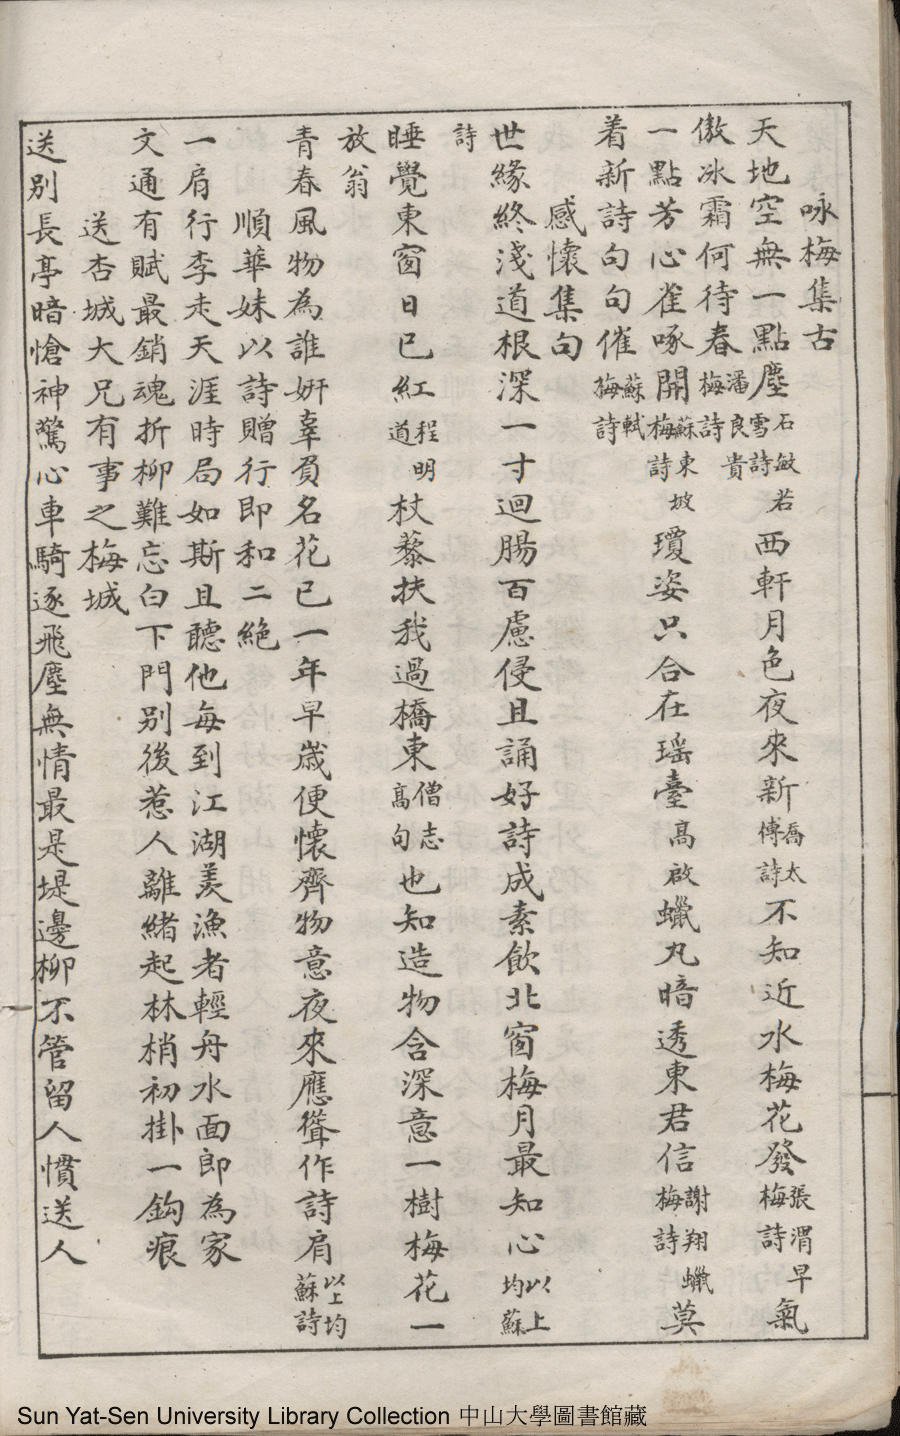 咏梅集古
天地空無一點塵石敏若雪詩西軒月色夜來新喬太博詩不知近水梅花發張渭早梅詩氣
傲冰霜何待春潘良貴梅詩
一點芳心雀啄開蘇東坡梅詩瓊姿只合在瑶臺高啟蠟丸暗透東君信謝翔蠟梅詩莫
着新詩句句催蘇軾梅詩
感懷集句
世緣終淺道根深一寸迴腸百慮侵且誦好詩成素飲北窗梅月最知心以上均蘇
詩
睡覺東窗日已紅程明道杖藜扶我過橋東僧志高句也知造物含深意一樹梅花一
放翁
青春風物為誰妍辜負名花已一年早歲便懷齊物意夜來應聳作詩肩以上均蘇詩
順華妹以詩贈行即和二絶
一肩行李走天涯時局如斯且聽他每到江湖羡漁者輕舟水面即為家
文通有賦最銷魂折柳難忘白下門别後惹人離緒起林梢初掛一鈎痕
送杏城大兄有事之梅城
送别長亭暗愴神驚心車騎逐飛塵無情最是堤邊柳不管留人慣送人
Sun Yat-Sen University Library Collection 中山大學圖書館藏